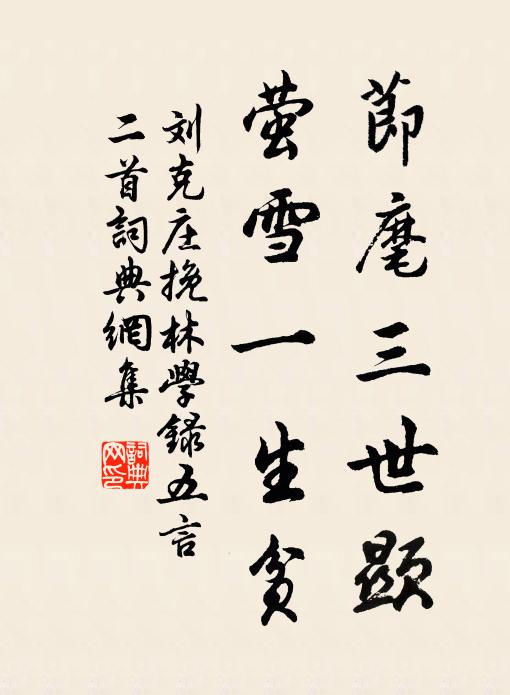 莭麾三世顯
萤雪一生貧
刘克庄挽林學録五言
二首詞典網集
詞典网印